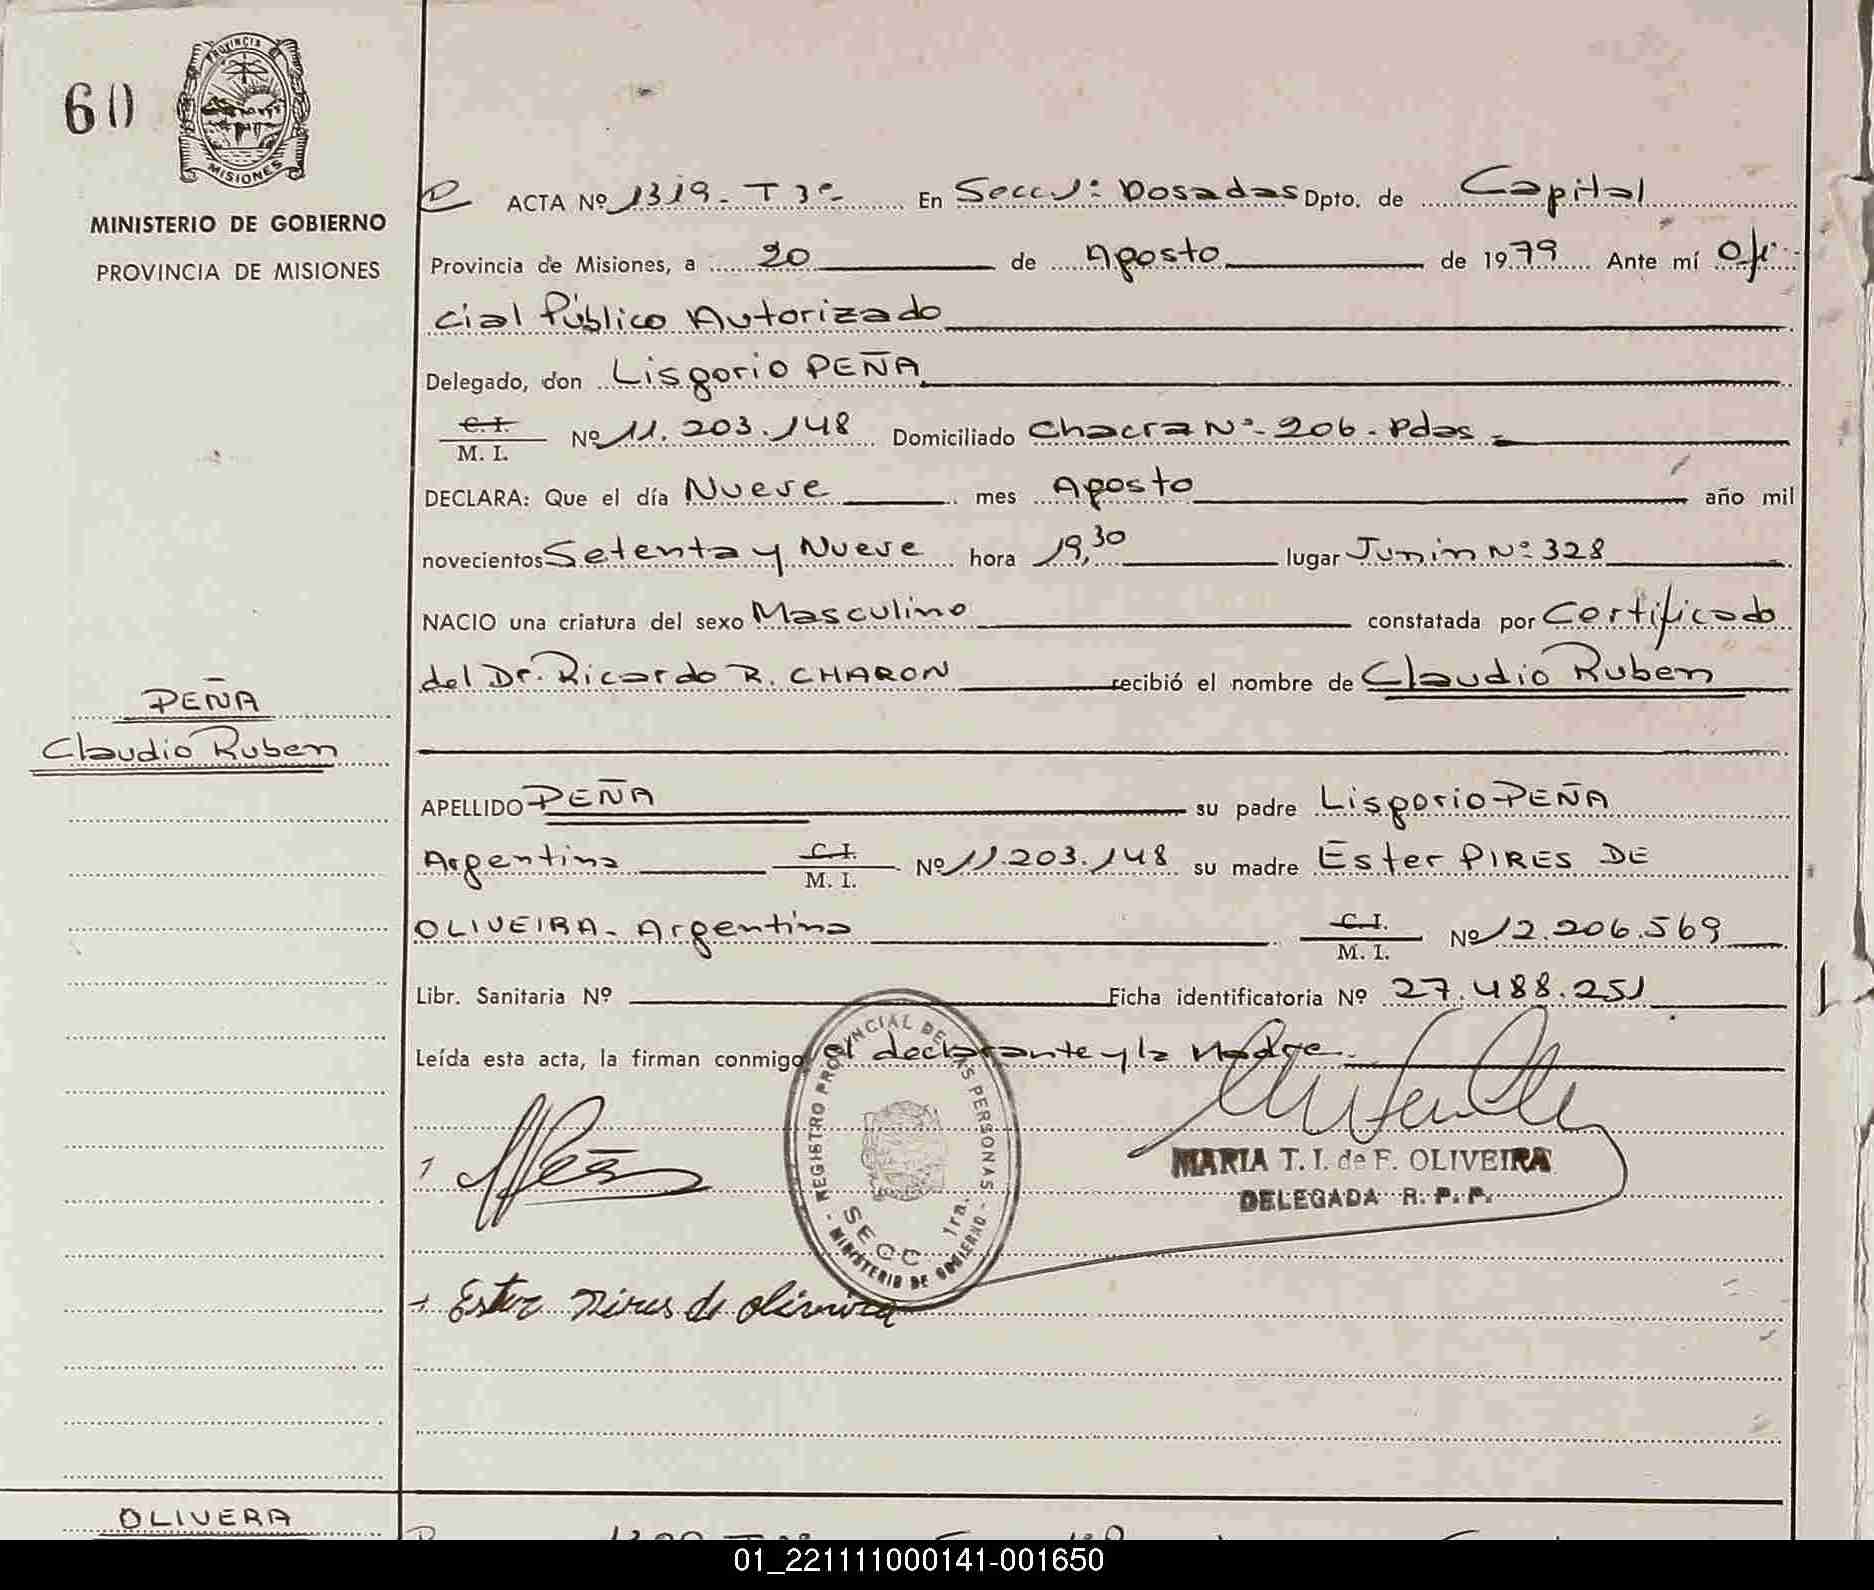 60
PROVINCIA DE
MISIONES
MINISTERIO DE GOBIERNO
PROVINCIA DE MISIONES
ACTA Nº 1319 - T 3º - En Secc 1ª: Posadas Dpto. de Capital
Provincia de Misiones, a 20 de Agosto de 1979 Ante mí Ofi-
cial Público Autorizado
Delegado, don Lisgorio PEÑA
C. I. M. I. Nº 11.203.148 Domiciliado Chacra Nº- 206 - Pdas -
DECLARA: Que el día Nueve mes Agosto año mil
novecientos Setenta y Nueve hora 19,30 lugar Junin Nº 328
NACIO una criatura del sexo Masculino constatada por Certificado
del Dr. Ricardo R. CHARON recibió el nombre de Claudio Ruben
PEÑA
Claudio Ruben
APELLIDO PEÑA su padre Lisgorio PEÑA
Argentina C. I. M. I. Nº 11.203.148 su madre Ester PIRES DE
OLIVEIRA - Argentina C. I. M. I. Nº 12.206.569
Libr. Sanitaria Nº Ficha identificatoria Nº 27.488.251
Leída esta acta, la firman conmigo el declarante y la Madre.
REGISTRO PROVINCIAL DE LAS PERSONAS
SECC 1ra.
- MINISTERIO DE GOBIERNO -
Peña
MARIA T. I. de F. OLIVEIRA
DELEGADA R. P. P.
Ester Pires de oliveira
OLIVERA
01_221111000141-001650